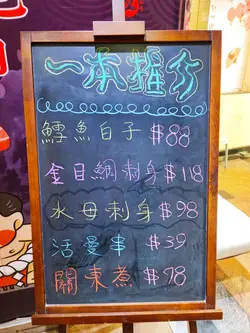 一本推介
鱈魚白子 $88
金目鯛刺身 $118
水母刺身 $98
活曼串 $39
關東煮 $78